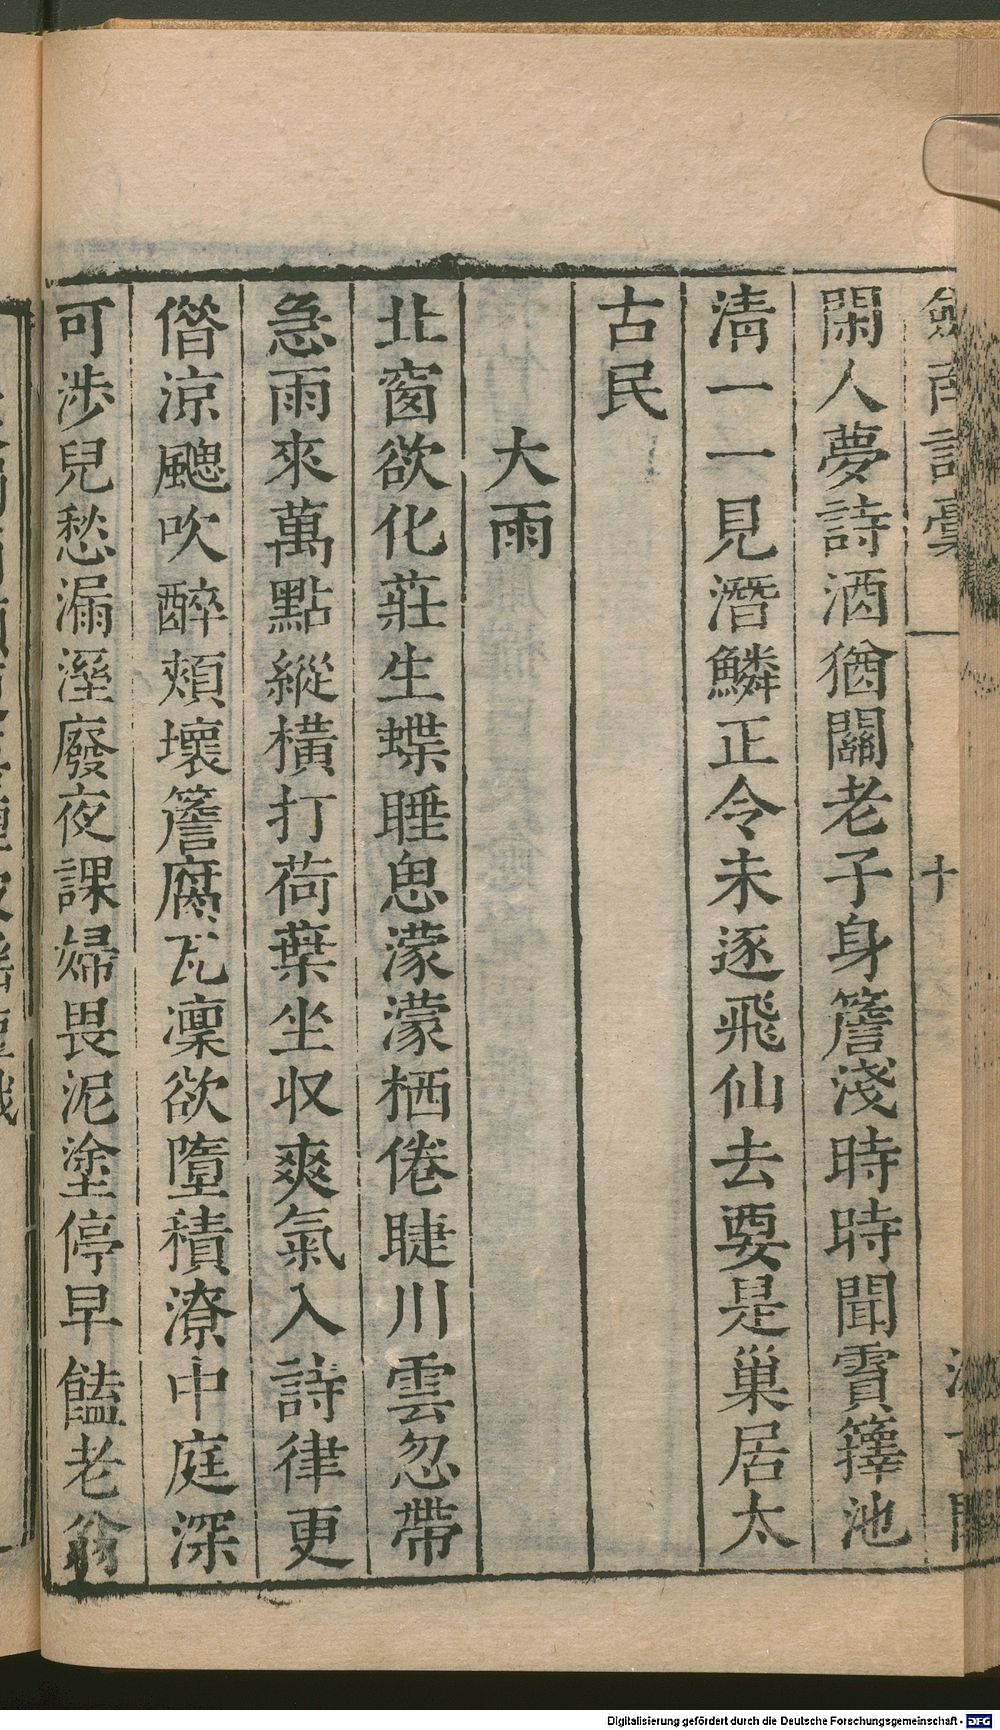 劍南詩稾
十
閑人夢詩酒猶關老子身簷淺時時聞霣籜池
淸一一見潛鱗正令未逐飛仙去要是巢居太
古民
大雨
北窗欲化莊生蝶睡思濛濛栖倦睫川雲忽帶
急雨來萬點縱橫打荷葉坐収爽氣入詩律更
僭涼颸吹醉頰壞簷腐瓦凜欲墮積潦中庭深
可涉兒愁漏溼廢夜課婦畏泥塗停早饁老翁
Digitalisierung gefördert durch die Deutsche Forschungsgemeinschaft - DFG